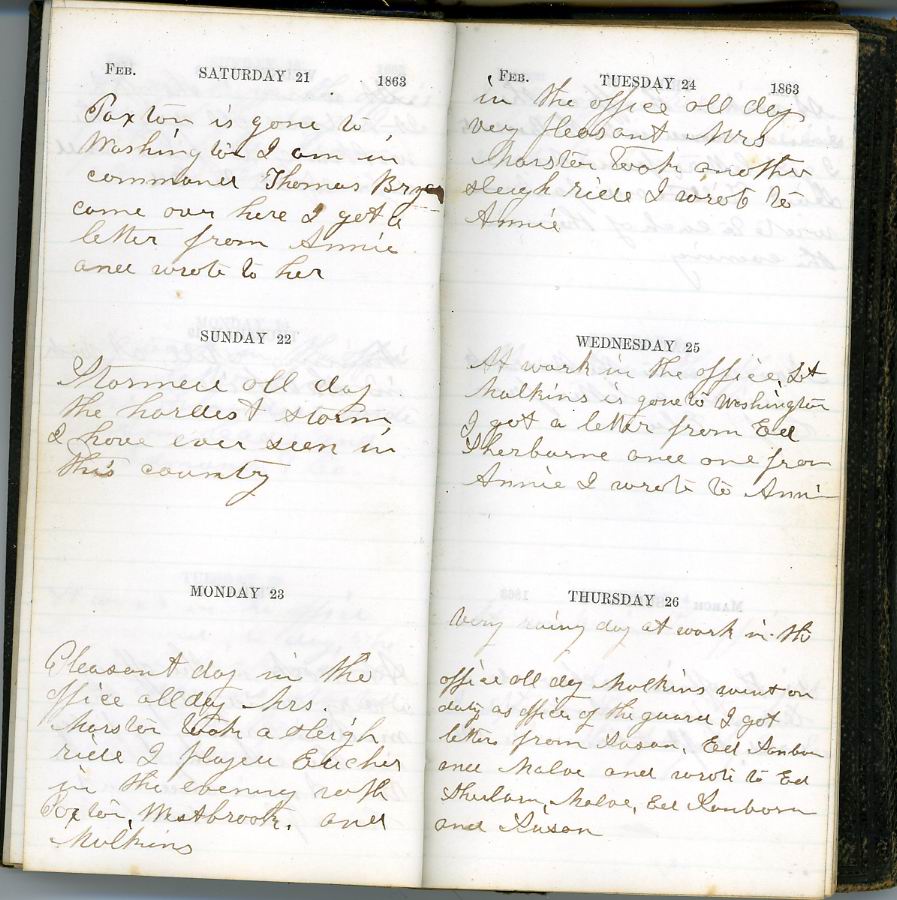 FEB. SATURDAY 21 1863
Paxton is gone to
Washington I am in
command Thomas
came over here I got a
letter from Annie
and wrote to her
SUNDAY 22
Stormed all day
the hardest storm
I have ever seen in
this country
MONDAY 23
Pleasant day in the
office all day Mrs.
Marston took a sleigh
ride I played Eucher
in the evening with
Paxton, Westbrook, and
Mulkins
FEB. TUESDAY 24 1863
in the office all day
very pleasant Mrs
Marston took another
sleigh ride I wrote to
Annie
WEDNESDAY 25
At work in the office, Lt
Mulkins is gone to Washington
I got a letter from Ed
Sherburne and one from
Annie I wrote to Annie
THURSDAY 26
Very rainy day at work in the
office all day Mulkins went on
duty as officer of the guard I got
letters from Susan, Ed Sanborn
and and wrote to Ed
Ed Sanborn
and Susan